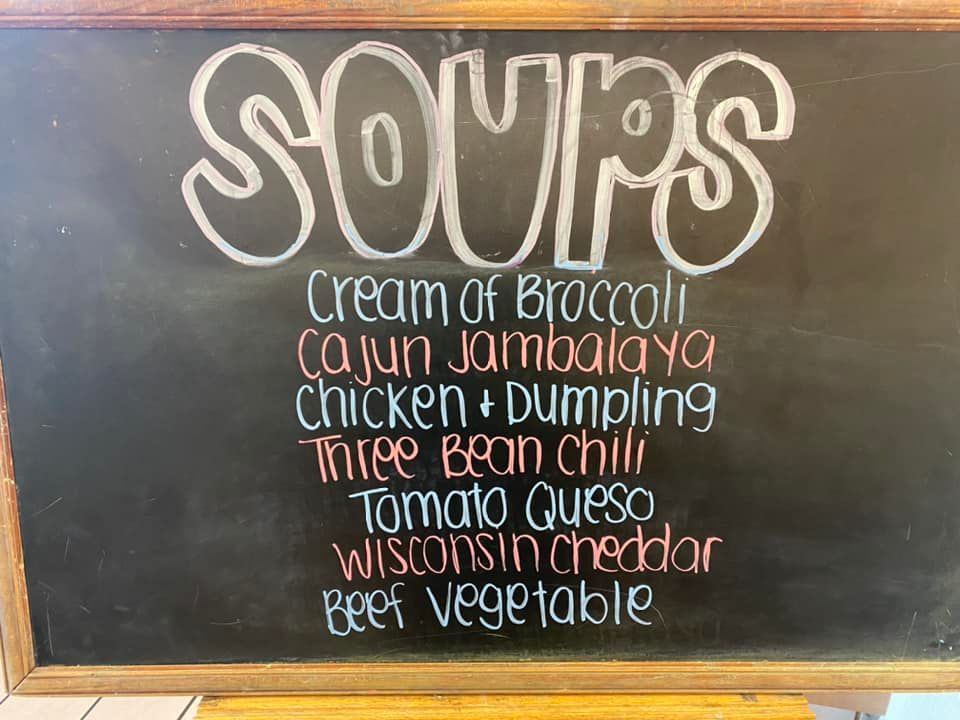 SOUPS
Cream of Broccoli
Cajun Jambalaya
Chicken + Dumpling
Three Bean Chili
Tomato Queso
Wisconsin Cheddar
Beef Vegetable